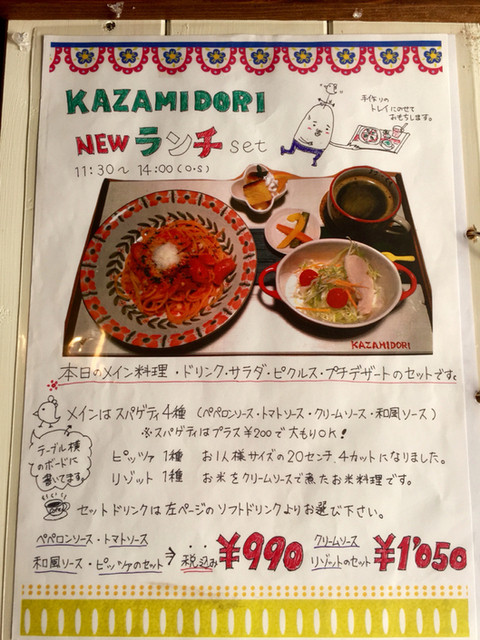 KAZAMIDORI
手作りの
トレイにのせて
おもちします。
NEW ランチ set
11:30～14:00(O.S)
KAZAMIDORI
本日のメイン料理・ドリンク・サラダ・ピクルス・プチデザートのセットです
メインはスパゲティ4種（ペペロンソース・トマトソース・クリームソース・和風ソース）
※スパゲティはプラス¥200で大もりOK!
テーブル横
のボードに
書いてます。
ピッツァ 1種 お1人様サイズの20センチ、4カットになりました。
リゾット 1種 お米をクリームソースで煮たお米料理です。
セットドリンクは左ページのソフトドリンクよりお選び下さい。
ペペロンソース・トマトソース
和風ソース・ピッツァのセット → 税込み ¥990
クリームソース
リゾットのセット ¥1'050